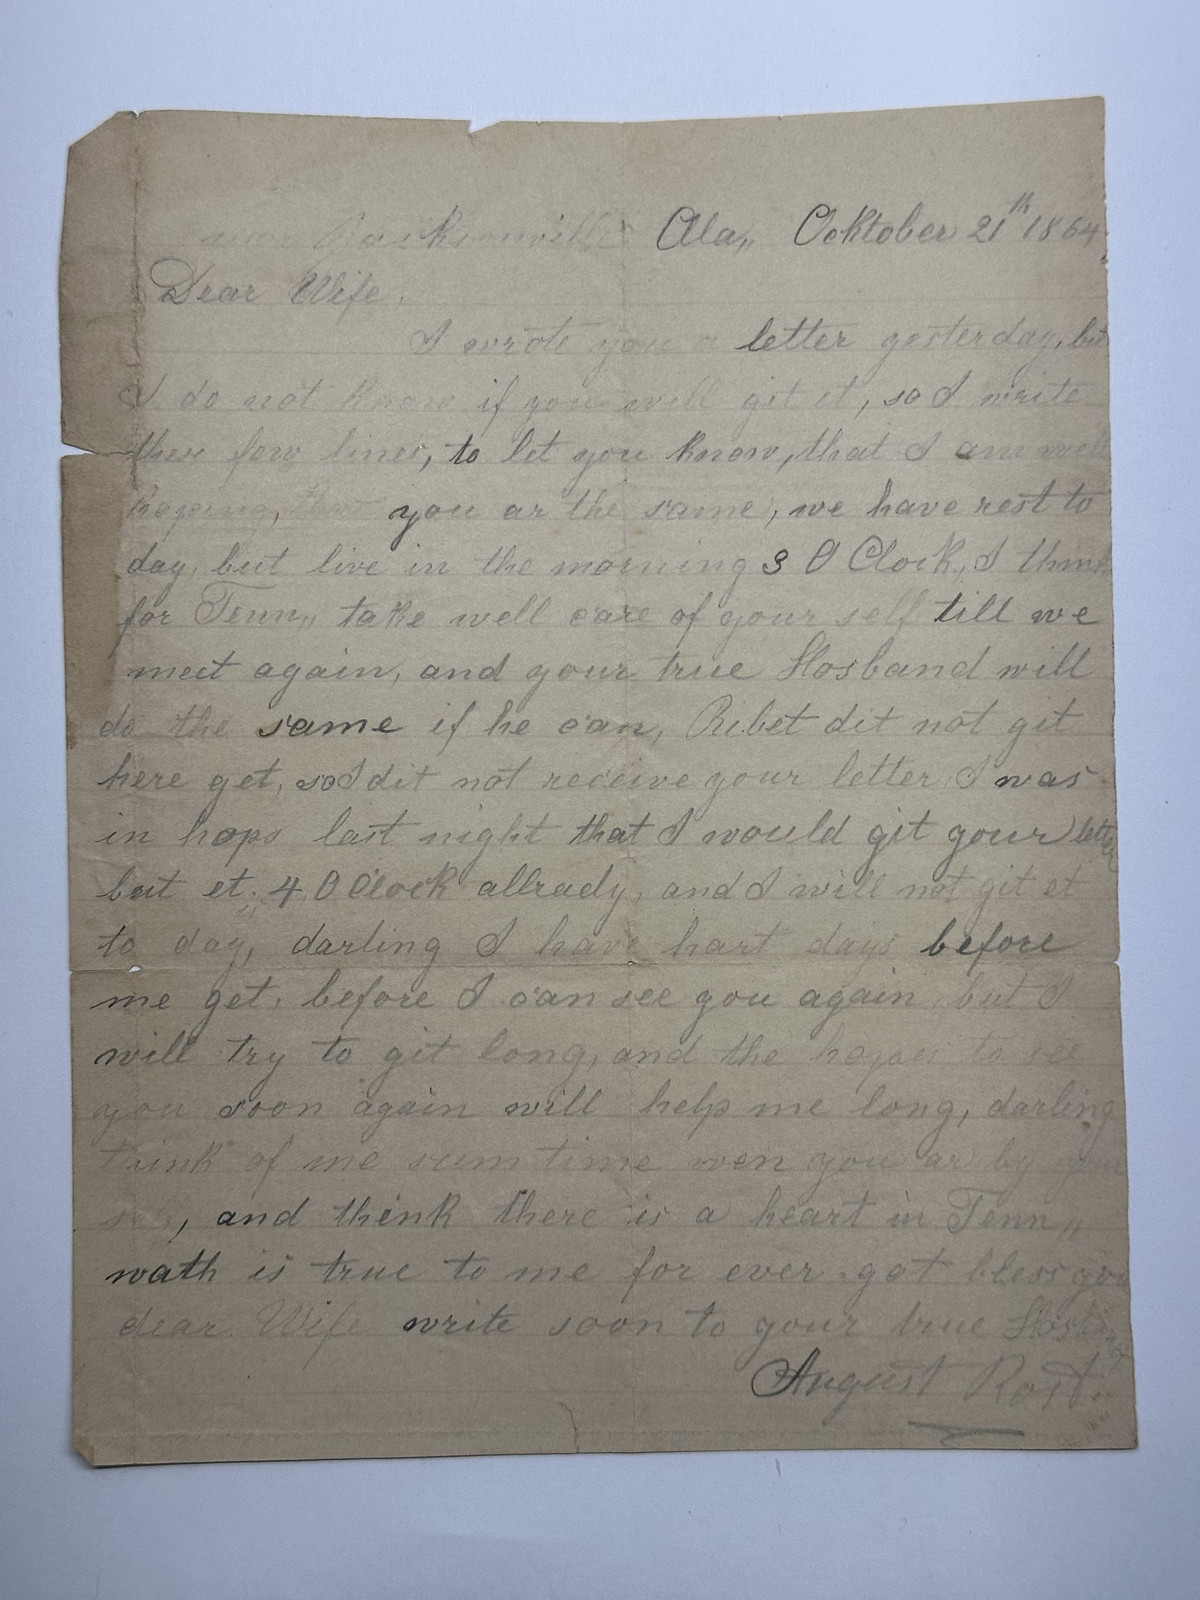 near Jacksonville Ala,, Ocktober 21th 1864
Dear Wife.
I wrote you a letter yesterday, but
I do not know if you will git it, so I write
thes few lines, to let you know, that I am well
hoping, that you ar the same, we have rest to
day, but live in the morning 3 O Clock, I think
for Tenn,, take well care of your self till we
meet again, and your true Hosband will
do the same if he can, Ribet dit not git
here yet, so I dit not receive your letter, I was
in hops last night that I would git your letter
but et, 4 O Clock allrady, and I will not git et
to day, darling I have hart days before
me yet, before I can see you again, but I
will try to git long, and the hopes to see
you soon again will help me long, darling
think of me sum time wen you ar by your
self, and think there is a heart in Tenn,,
wath is true to me for ever. got bless you
dear Wife write soon to your true Hosband
August